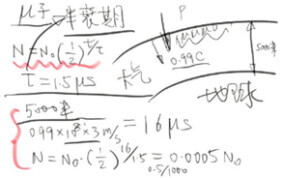 μ子 半衰期
N=N₀(1/2)^(t/τ)
τ=1.5μs
P
0.99C
大气
5000米
地球
5000米
0.99×10⁸×3m/s =16μs
N=N₀·(1/2)^(16/1.5)=0.0005N₀
0.5/1000